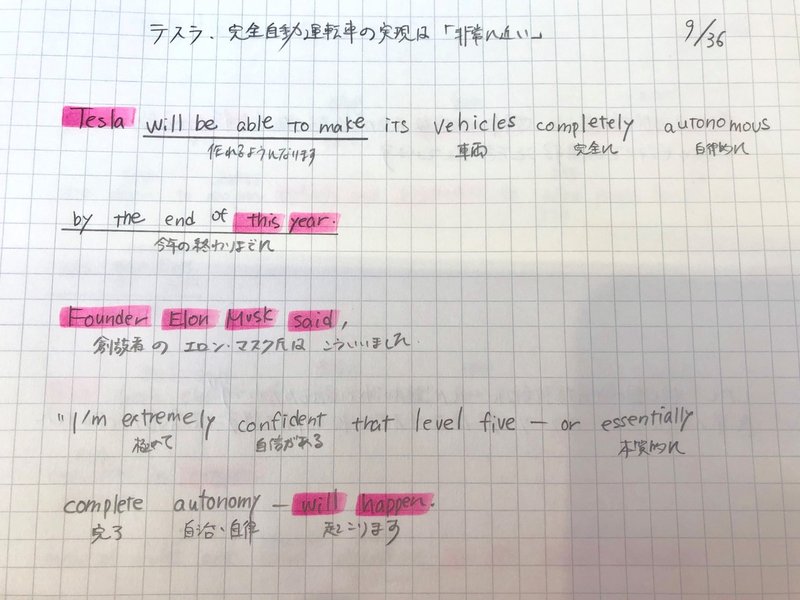 テスラ、完全自動運転車の実現は「非常に近い」 9/36
Tesla will be able to make its vehicles completely autonomous
作れるようになります 車両 完全に 自律的に
by the end of this year.
今年の終わりまでに
Founder Elon Musk said,
創設者の エロン・マスク氏は こういいました
"I'm extremely confident that level five – or essentially
極めて 自信がある 本質的に
complete autonomy – will happen.
完了 自治・自律 起こります